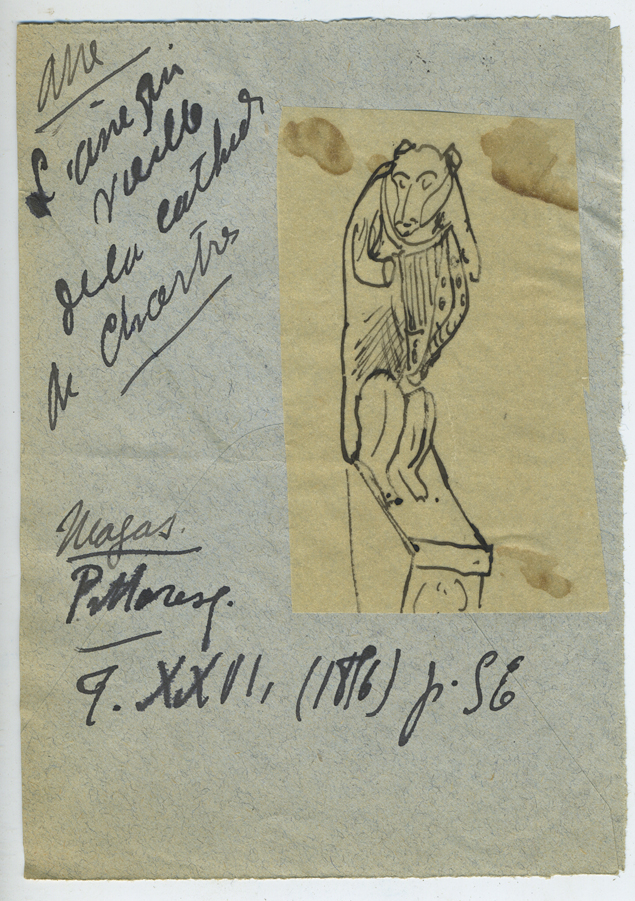 Ane
L'âne qui
vielle
de la cathedr
de Chartres
Magas.
Pittoresq.
T. XXVI, p. 56